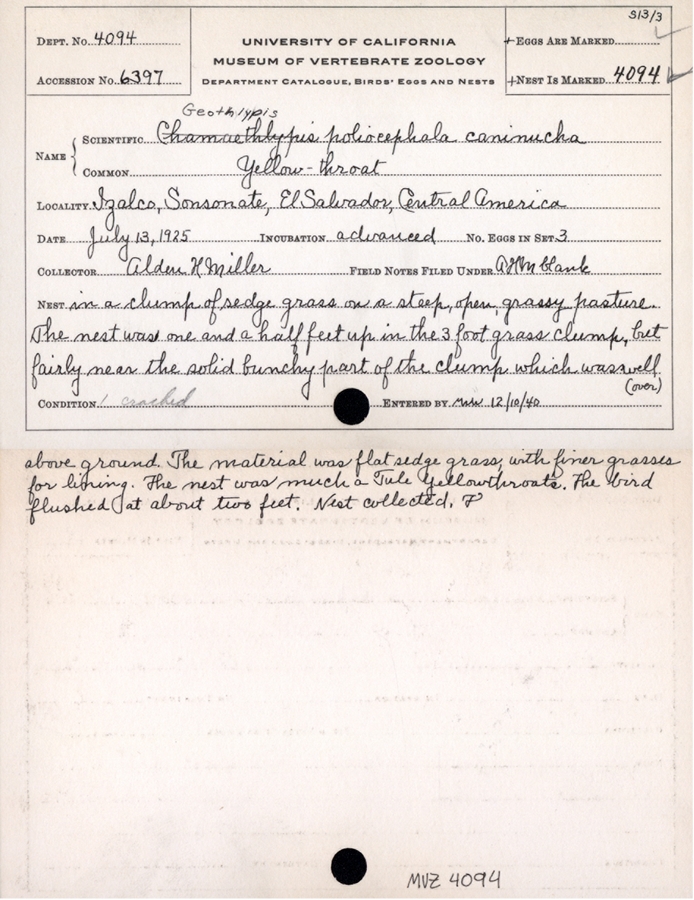 513/3
DEPT. NO. 4094
UNIVERSITY OF CALIFORNIA
+EGGS ARE MARKED
MUSEUM OF VERTEBRATE ZOOLOGY
ACCESSION NO. 6397
DEPARTMENT CATALOGUE, BIRDS' EGGS AND NESTS
+NEST IS MARKED 4094
Geothlypis
NAME
SCIENTIFIC Chamaethlypis poliocephala caninucha
COMMON Yellow-throat
LOCALITY Izalco, Sonsonate, El Salvador, Central America
DATE July 13, 1925 INCUBATION advanced NO. EGGS IN SET 3
COLLECTOR Alden H Miller FIELD NOTES FILED UNDER AHM blank
NEST in a clump of sedge grass on a steep, open, grassy pasture.
The nest was one and a half feet up in the 3 foot grass clump, but
fairly near the solid bunchy part of the clump which was well
(over)
CONDITION cracked ENTERED BY 12/10/40
above ground. The material was flat sedge grass, with finer grasses
for lining. The nest was much a Tule Yellowthroats. The bird
flushed at about two feet. Nest collected.
MVZ 4094